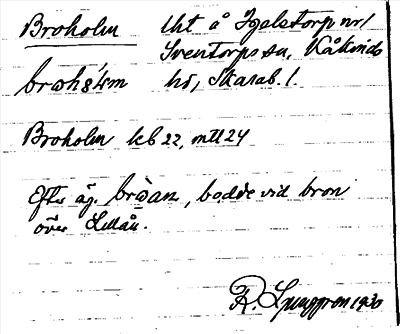 Broholm Uht å Igelstorp nr 1
Sventorps sn, Kåkinds
hd, Skarab. l.
Broholm kb 22, mtl 24
Efter äg. , bodde vid bron
över Lillån.
R. Ljunggren 1930